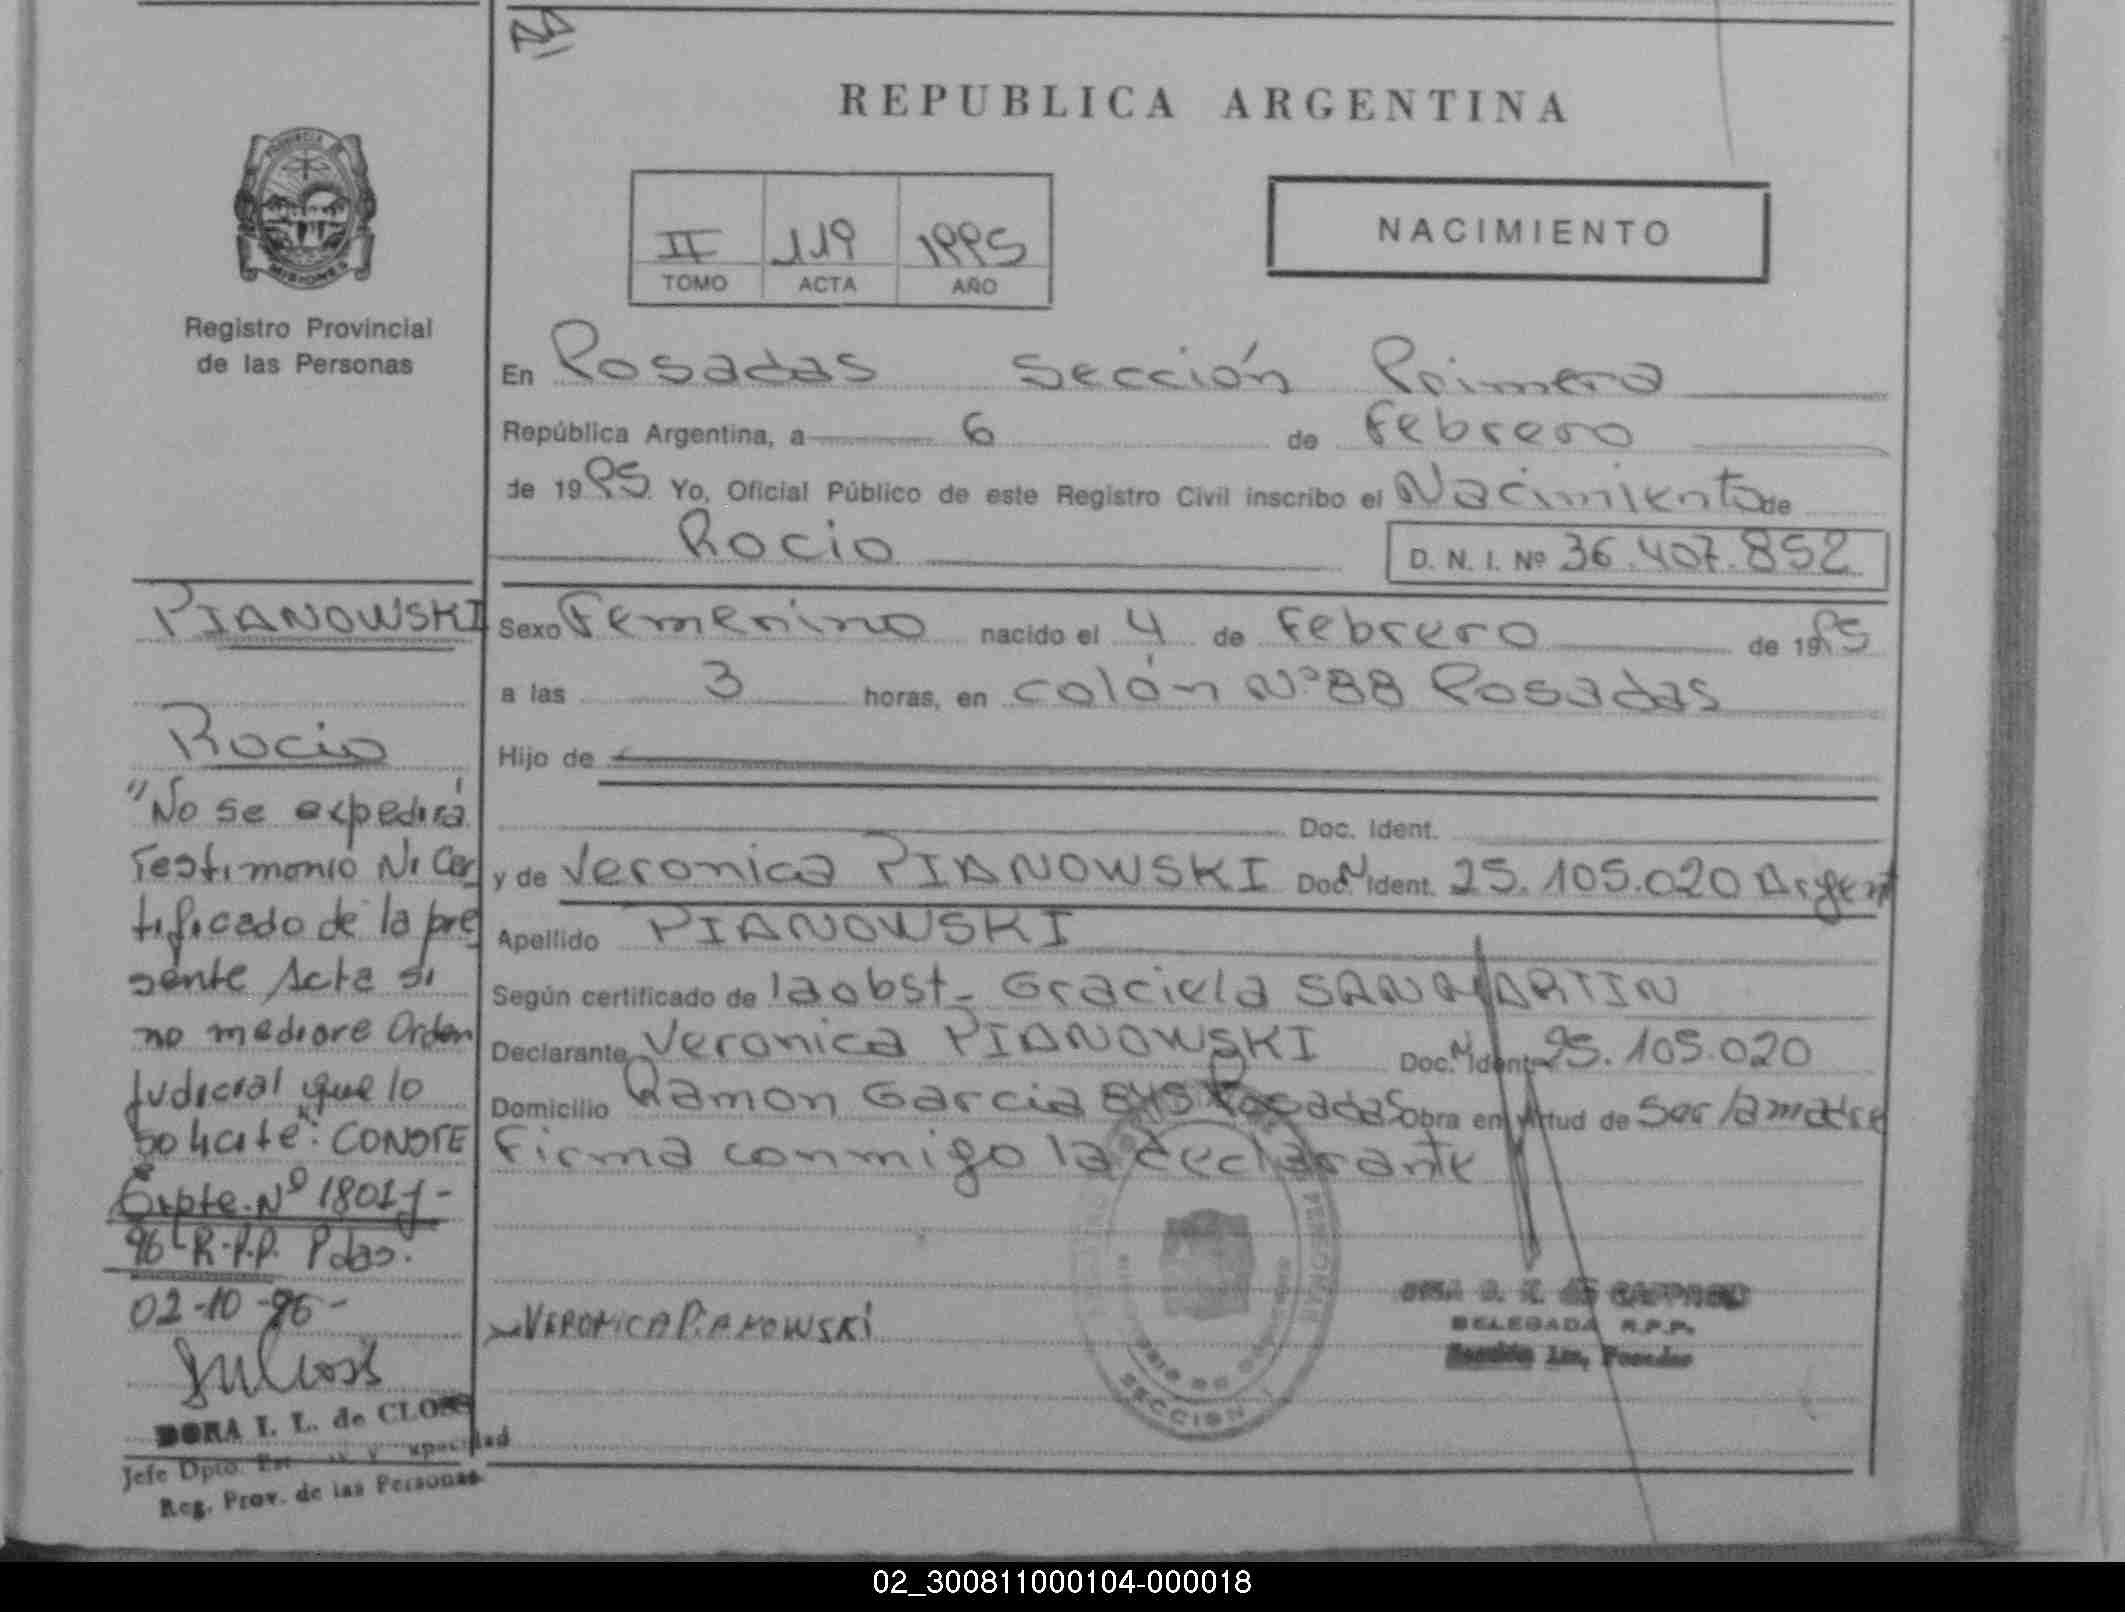 REPUBLICA ARGENTINA
II 119 1995
TOMO ACTA AÑO
NACIMIENTO
PROVINCIA
MISIONES
Registro Provincial
de las Personas
En Posadas Sección Primera
República Argentina, a 6 de Febrero
de 1995. Yo, Oficial Público de este Registro Civil inscribo el Nacimiento de
Rocio D. N. I. Nº 36.407.852
Sexo Femenino nacido el 4 de Febrero de 1995
a las 3 horas, en Colón Nº 88 Posadas
Hijo de
Doc. Ident.
y de Veronica PIANOWSKI Doc. N Ident. 25.105.020 Argent
Apellido PIANOWSKI
Según certificado de la obst- Graciela SANMARTIN
Declarante Veronica PIANOWSKI Doc. N Ident. 25.105.020
Domicilio Ramon Garcia Posadas Obra en virtud de Ser la madre
Firma conmigo la declarante
VERONICA PIANOWSKI
SECCION
DELEGADA R.P.P.
Sección 1ra, Posadas
PIANOWSKI
Rocio
"No se expedirá
Testimonio Ni Cer
tificado de la pre
sente Acta si
no mediare Orden
Judicial que lo
Solicite". CONSTE
Expte. Nº 1801
96-R.P.P. Pdas.
02-10-96-
DORA I. L. de CLOSS
Jefe Dpto.
Reg. Prov. de las Personas
02_300811000104-000018